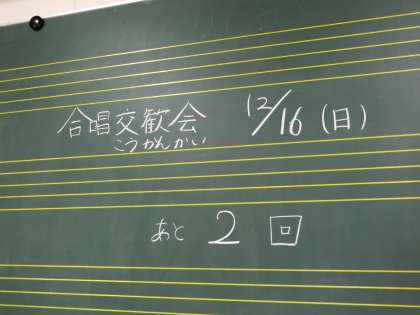 合唱交歓会 12/16 (日)
こうかんかい
あと 2 回